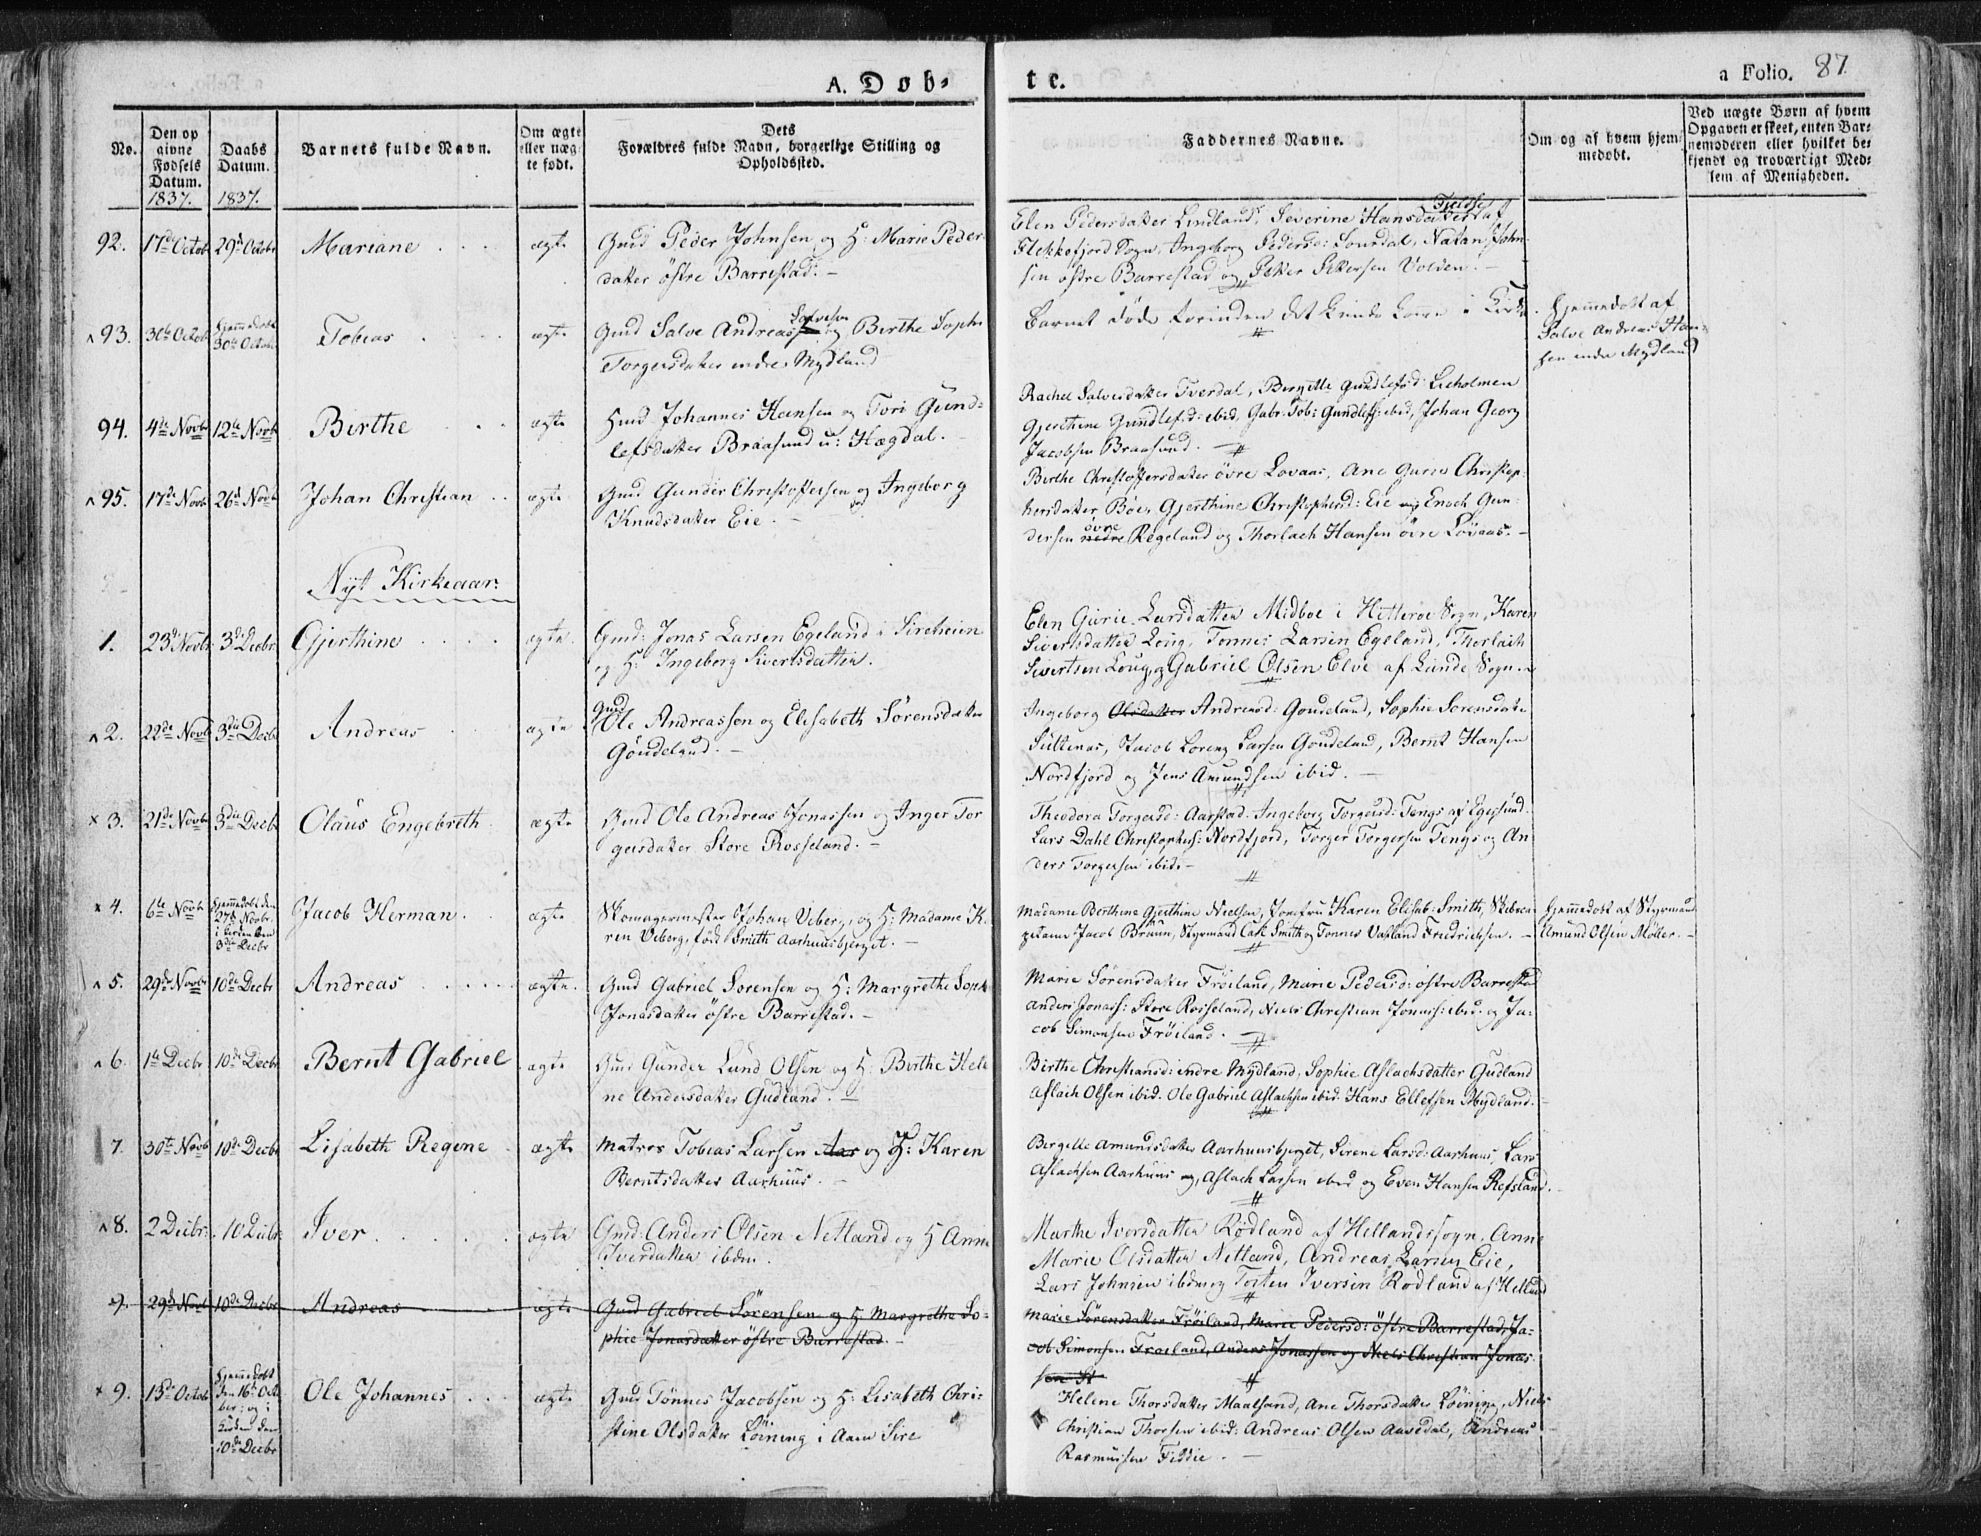 A. Døb-
te.
a Folio. 87
No.
Den op
givne
Fødsels
Datum.
1837.
Daabs
Datum.
1837.
Barnets fulde Navn.
Om ægte
eller uæg-
te født.
Dets
Forældres fulde Navn, borgerlige Stilling og
Opholdssted.
Faddernes Navne.
Om og af hvem hjem-
medøbt.
Ved uægte Børn af hvem
Opgaven er skeet, enten Bar-
nemoderen eller hvilket be-
kjendt og troværdigt Med-
lem af Menigheden.
92. 17de Octob 29de Octobr Mariane ægte
Gmd Peder Johnsen og H: Marie Peder-
datter østre Barrestad. -
Elen Pedersdatter Lindland, Severine Hansdatter af
Flekkefjord Sogn, Ingeborg Pedersd: Lourdal, Natan John-
sen østre Barrestad og Petter Pettersen Volden. -
93. 30te Octob Hjemmedøbt 30te Octobr Tobias ægte
Gmd Salve Andreas Salvesen og Birthe Soph:
Torgersdatter indre Mydland
Barnet døde forinden det kunde komme i Kirke.
Hjemmedøbt af
Salve Andreas Han-
sen indre Mydland
94. 4de Novbr 12te Novbr Birthe ægte
Hmd Johannes Hansen og Tori Gund-
lefsdatter Braasund u: Hægdal. -
Rachel Salvesdatter Tverdal, Birgitte Gundlefsd: Lieholmen
Gjerthine Gundlefsd: ibid, Gabr. Tob: Gundlefs: ibid, Johan Georg
Jacobsen Braasund.
95. 17de Novbr 26de Novbr Johan Christian ægte
Gmd Gunder Christoffersen og Ingeborg
Knudsdatter Eie. -
Birthe Christoffersdatter øvre Lovaas, Ane Gurie Christop-
hersdatter Bøe, Gjerthine Christophersd: Eie og Enoch Gun-
dersen nedre øvre Regeland og Thorlach Hansen øvre Løvaas. -
Nyt Kirkeaar:
1. 23de Novbr 3de Decbr. Gjerthine ægte.
Gmd: Jonas Larsen Egeland i Sireheien
og H: Ingeborg Sivertsdatter.
Elen Gurie Larsdatter Midboe i Hitterøe Sogn, Karen
Sivertsdatter Loug, Tonnes Larsen Egeland, Thorlaich
Sivertsen Loug, og Gabriel Olsen Elve af Lunde Sogn.
2. 22de Novbr 3die Decbr Andreas ægte
Gmd Ole Andreassen og Elisabeth Sørensdatter
Goudeland. -
Ingeborg Olsdatter Andreasd: Goudeland, Sophie Sorensdatr
Sultenas, Jacob Lorenz Larsen Goudeland, Bernt Hansen
Nordfjord og Jens Amundsen ibid. -
3. 21de Novbr 3die Decbr Olaus Engebreth ægte
Gmd Ole Andreas Jonassen og Inger Tor-
gersdatter Store Rosseland. -
Theodora Torgersd: Aarstad, Ingeborg Torgersd: Tengs af Egesund
Lars Dahl Christophers: Nordfjord, Torger Torgersen Tengs og An-
ders Torgersen ibid. -
4. 6te Novbr Hjemmedøbt den 27de Novbr. i kirken den 3die Decbr Jacob Herman. ægte
Skomagermester Johan Veberg, og H: Madame K-
ren Veberg, født Smith Aarhuusbjerget. -
Madame Berthine Gjerthine Nielsen, Jomfru Karen Elisab: Smith, Skibsca-
pitaine Jacob Bruun, Styrmand Carl Smith og Tonnes Vasland Friedrichsen. -
Hjemmedøbt af Styrmand
Amund Olsen Møller. -
5. 29de Novbr 10de Decbr Andreas ægte.
Gmd Gabriel Sorensen og H: Margrethe Soph:
Jonasdatter østre Barrestad. -
Marie Sørensdatter Frøiland, Marie Pedersd: østre Barrestad
Anders Jonas: Store Rosseland, Niels Christian Jonas: ibid. og Ja-
cob Simonsen Frøiland. -
6. 1te Decbr 10de Decbr Bernt Gabriel ægte
Gmd Gunder Lund Olsen og H: Birthe Hele-
ne Andersdatter Gudland. -
Birthe Christiansd: indre Mydland, Sophie Aslachsdatter Gudland
Aslach Olsen ibid. Ole Gabriel Aslachsen ibid. Hans Ellefsen Mydland. -
7. 30te Novbr 10de Decbr Lisabeth Regine ægte
Matros Tobias Larsen Aar og H: Karen
Berntsdatter Aarhuus. -
Birgitte Amundsdatter Aarhuusbjerget, Serene Larsd: Aarhuus, Lars
Aslachsen Aarhuus og, Aslach Larsen ibid og Even Hansen Refsland. -
8. 2 Decbr. 10 Decbr. Iver ægte
Gmd: Anders Olsen Netland og H Anne
Iversdatter ibdm.
Marthe Iversdatter Rødland af Hellands sogn, Anne
Marie Olsdatter Netland, Andreas Larsen Eie,
Lars Johnsen ibdm og Torsten Iversen Rødland af Helland
9. 29de Novbr 10de Decbr Andreas ægte
Gmd Gabriel Sørensen og H: Margrethe So-
phie Jonasdatter østre Barrestad. -
Marie Sørensdatter Frøiland, Marie Pedersd: østre Barrestad, Ja-
cob Simonsen Frøiland, Anders Jonassen og Niels Christian Jonas-
sen St
9. 15de Octobr Hjemmedøbt den 16de Octo- ber; og i Kirken den 10de Decbr Ole Johannes ægte
Gmd Tønnes Jacobsen og H: Lisabeth Chri-
stine Olsdatter Løining i Aam Sire
Helene Thorsdatter Maalsand, Ane Thorsdatter Løining, Niels
Christian Thorsen ibid: Andreas Olsen Aavedal, Andreas
Rasmussen Fiddie. -